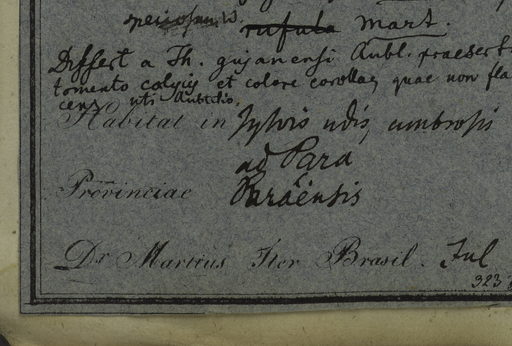 speciosum W. rufula Mart.
Differt a Th. gujanensi Aubl. praesert
tomento calycis et colore corollae, quae non fla
cens uti Aubletio.
Habitat in Sylvis udis, umbrosis
ad Para
Provinciae Paraënsis
Dr Martius Iter Brasil. Jul
323